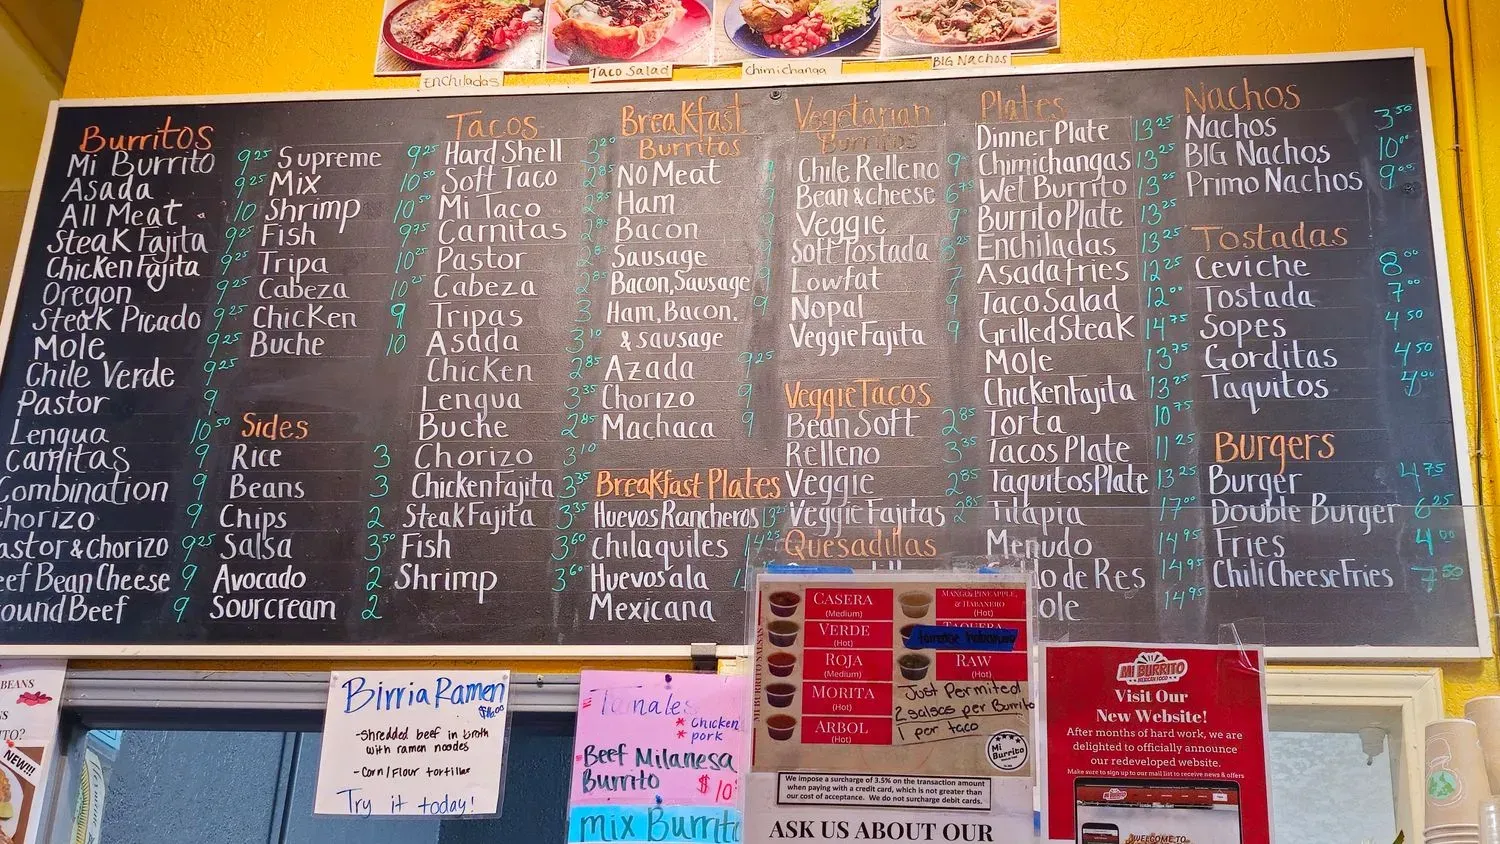 Enchiladas
Taco Salad
Chimichanga
BIG Nachos
Burritos
Mi Burrito 9.25
Asada 9.25
All Meat 10
Steak Fajita 9.25
Chicken Fajita 9.25
Oregon 9.25
Steak Picado 9.25
Mole 9.25
Chile Verde 9.25
Pastor 9
Lengua 10.50
Carnitas 9
Combination 9
Chorizo 9
astor & Chorizo 9.25
eef Bean Cheese 9
ound Beef 9
Supreme 9.25
Mix 10.50
Shrimp 10.50
Fish 9.75
Tripa 10.25
Cabeza 10.25
Chicken 9
Buche 10
Sides
Rice 3
Beans 3
Chips 2
Salsa 3.50
Avocado 2
Sour cream 2
Tacos
Hard Shell 3.20
Soft Taco 2.85
Mi Taco 2.85
Carnitas 2.85
Pastor 2.85
Cabeza 2.85
Tripas 3
Asada 3.10
Chicken 2.85
Lengua 3.35
Buche 2.85
Chorizo 3.10
Chicken Fajita 3.35
Steak Fajita 3.35
Fish 3.60
Shrimp 3.60
Breakfast
Burritos
No Meat 9
Ham 9
Bacon 9
Sausage 9
Bacon, Sausage 9
Ham, Bacon. 9
& sausage
Azada 9.25
Chorizo 9
Machaca 9
Breakfast Plates
Huevos Rancheros 13.25
Chilaquiles 14.25
Huevos ala
Mexicana
Vegetarian
Burritos
Chile Relleno 9
Bean & cheese 6.75
Veggie 9
Soft Tostada 8.25
Lowfat 7
Nopal 9
Veggie Fajita 9
Veggie Tacos
Bean Soft 2.85
Relleno 3.35
Veggie 2.85
Veggie Fajitas 2.85
Quesadillas
Plates
Dinner Plate 13.25
Chimichangas 13.25
Wet Burrito 13.25
Burrito Plate 13.25
Enchiladas 13.25
Asada fries 12.25
Taco Salad 12.00
Grilled Steak 14.75
Mole 13.75
Chicken Fajita 13.25
Torta 10.75
Tacos Plate 11.25
Taquitos Plate 13.25
Tilapia 17.00
Menudo 14.95
do de Res 14.95
ole 14.95
Nachos
Nachos 3.50
BIG Nachos 10.00
Primo Nachos 9.00
Tostadas
Ceviche 8.00
Tostada 7.00
Sopes 4.50
Gorditas 4.50
Taquitos 4.00
Burgers
Burger 4.75
Double Burger 6.25
Fries 4.00
Chili Cheese Fries 7.50
BEANS
NEW!!!
Birria Ramen
$16.00
-Shredded beef in broth
with ramen noodles
-Corn/Flour tortillas
Try it today!
Tamales
* Chicken
* pork
Beef Milanesa
Burrito $10
mix Burrito
MI BURRITO SALSAS
CASERA
(Medium)
VERDE
(Hot)
ROJA
(Medium)
MORITA
(Hot)
ARBOL
(Hot)
MANGO, PINEAPPLE,
& HABANERO
(Hot)
TAQUERA
RAW
(Hot)
Just Permited
2 salsas per Burrito
1 per taco
Mi
Burrito
We impose a surcharge of 3.5% on the transaction amount
when paying with a credit card, which is not greater than
our cost of acceptance. We do not surcharge debit cards.
ASK US ABOUT OUR
MI BURRITO
MEXICAN FOOD
Visit Our
New Website!
After months of hard work, we are
delighted to officially announce
our redeveloped website.
Make sure to sign up to our mail list to receive news & offers
WELCOME TO